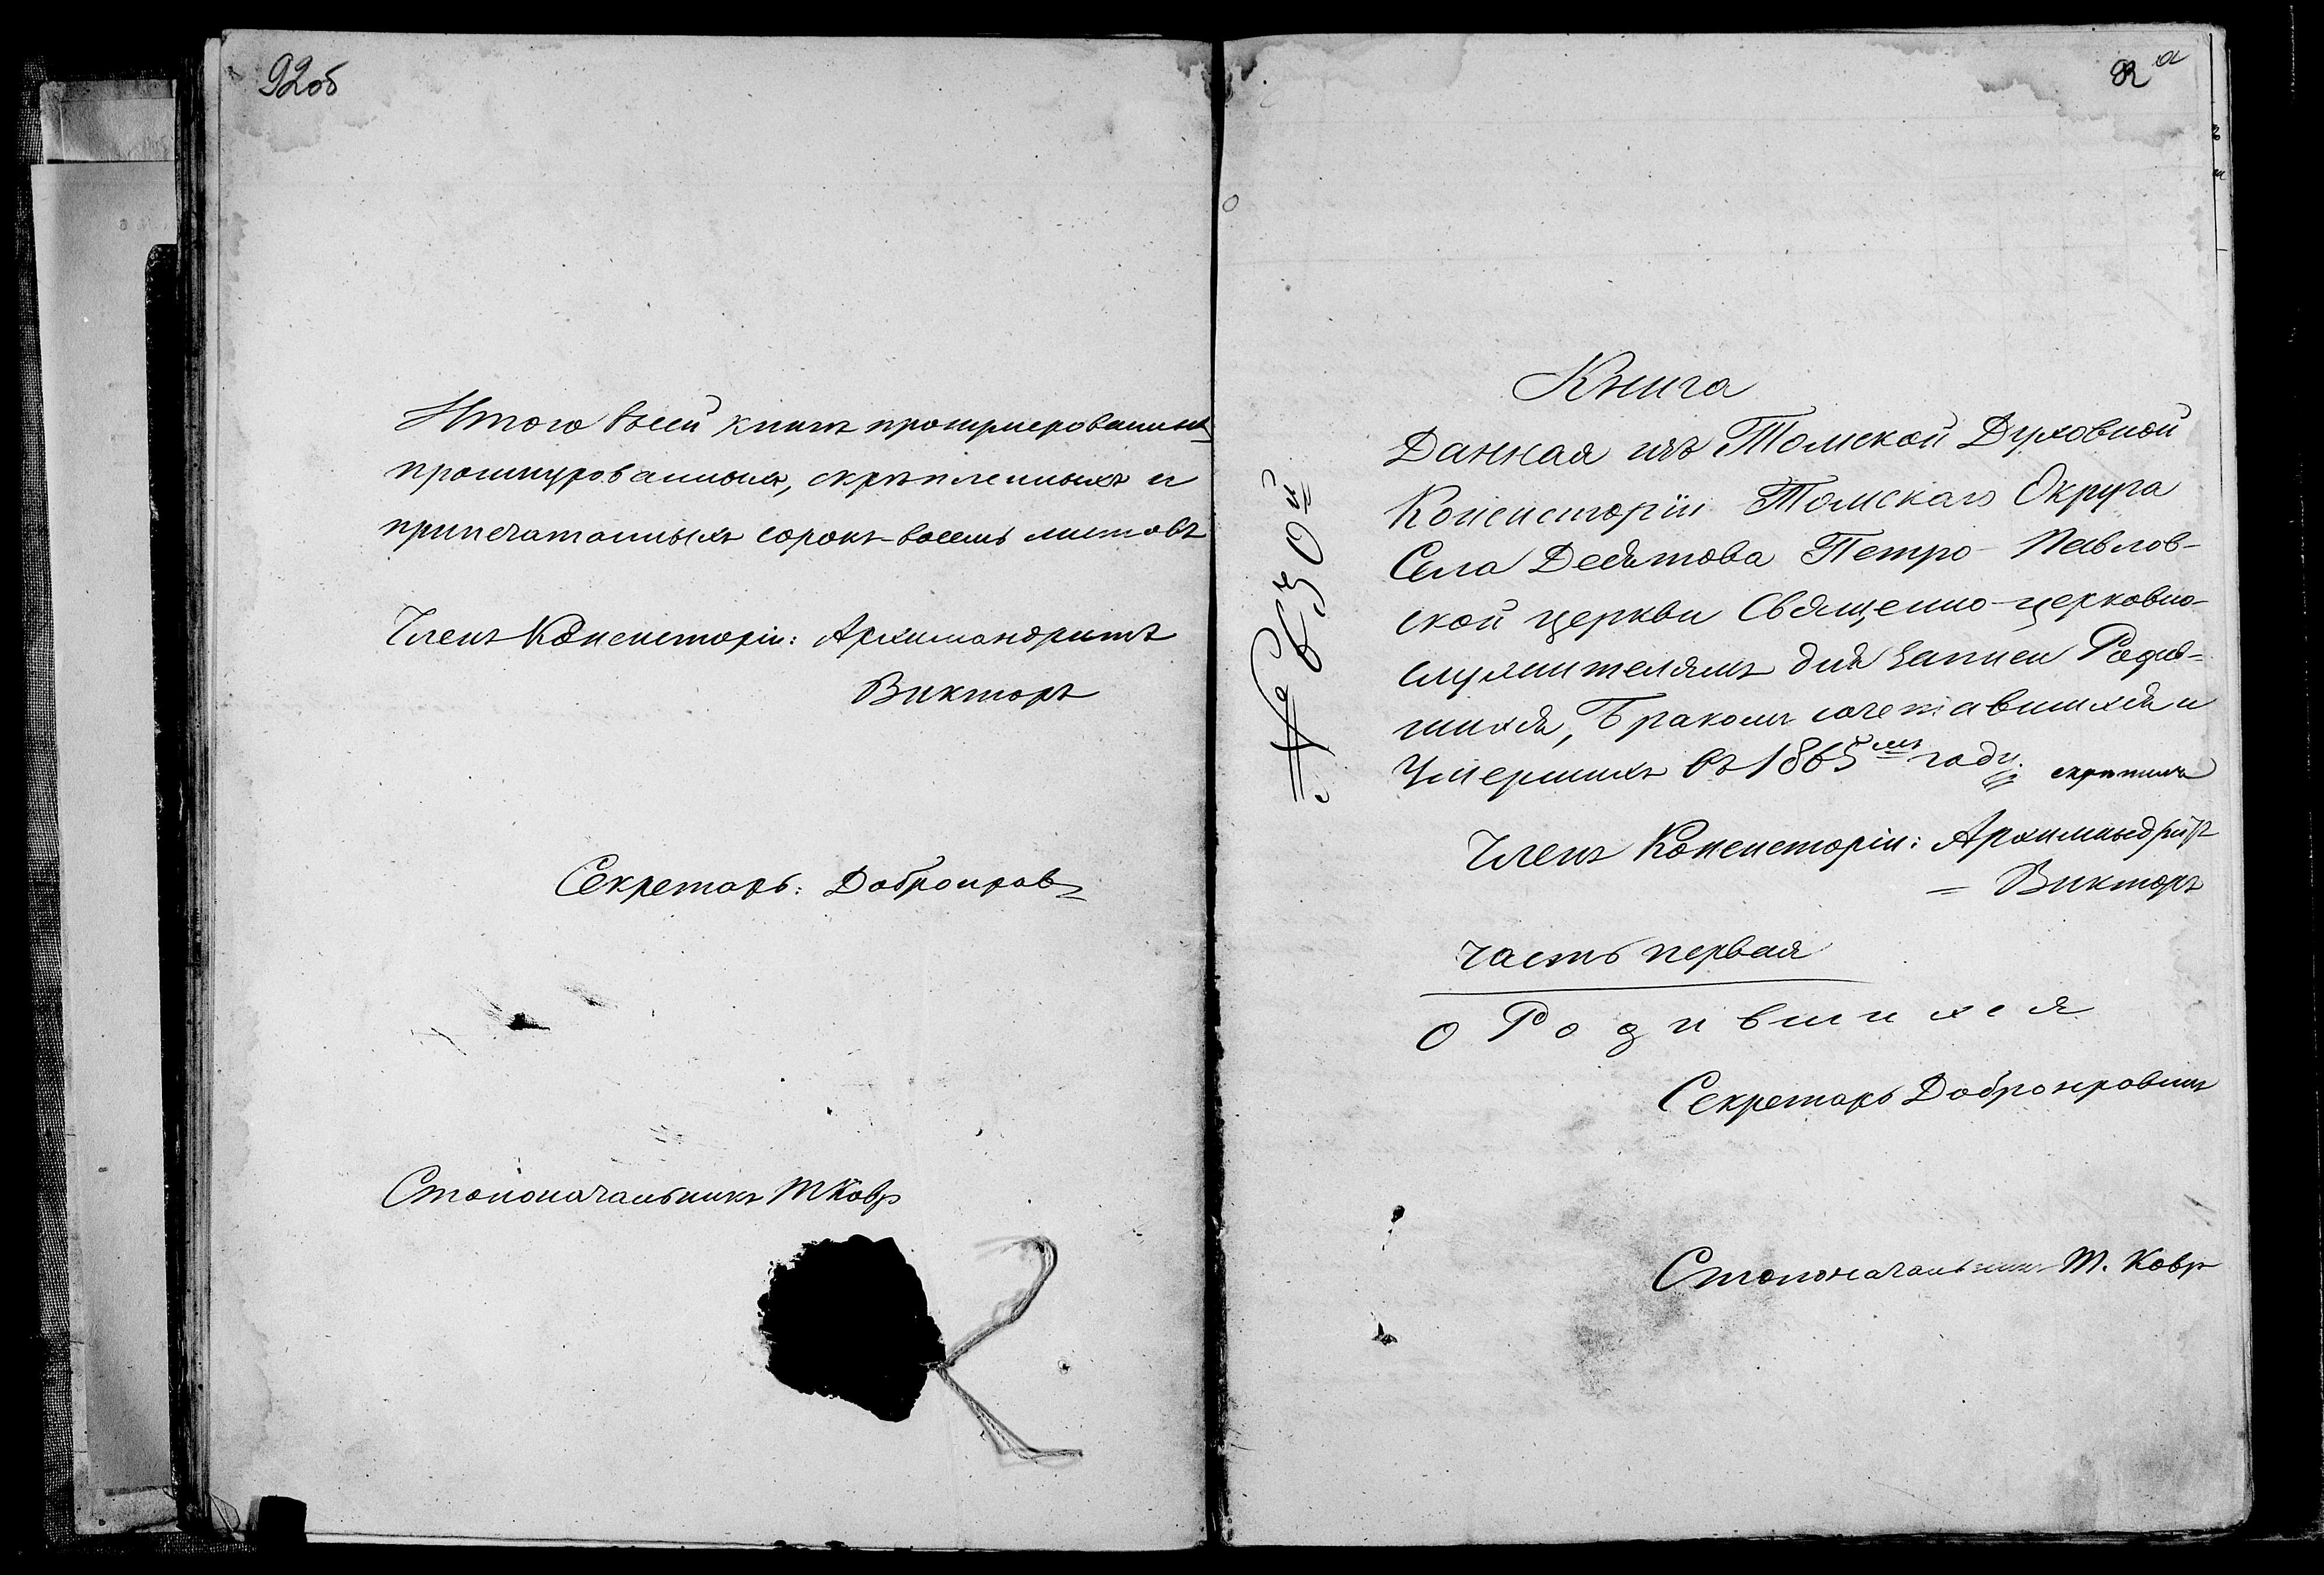 92об
Итого в сей книгѣ пронумерованныхъ
прошнурованныхъ, скрѣпленныхъ и
припечатанныхъ сорокъ восемь листовъ
Членъ Консисторіи: Архимандритъ
Викторъ
Секретарь: Добронравовъ
Столоначальникъ
Книга
Данная изъ Томской Духовной
Консисторіи Томскаго Округа
Села Десятова Петро-Павлов-
ской церкви Священно-церковно-
служителямъ для записи Родив-
шихся, Бракомъ сочетавшихся и
Умершихъ въ 1865мъ году. скрѣпилъ
Членъ Консисторіи: Архимандритъ
Викторъ
Часть первая
О Родившихся
Секретарь
Столоначальникъ